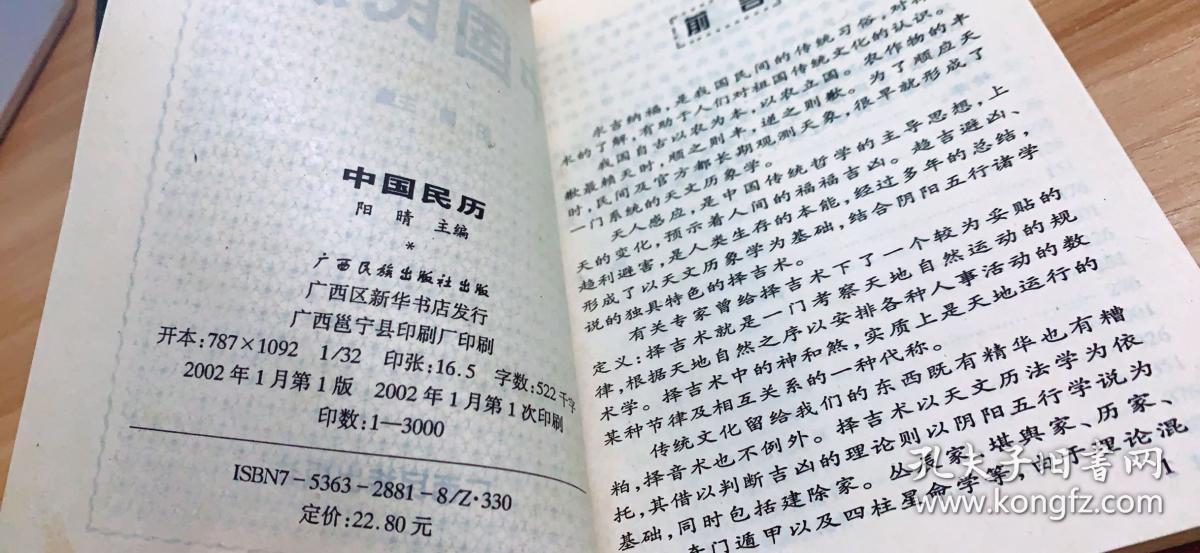 中国民历
阳晴 主编
*
广西民族出版社出版
广西区新华书店发行
广西邕宁县印刷厂印刷
开本:787×1092 1/32 印张:16.5 字数:522千字
2002年1月第1版 2002年1月第1次印刷
印数:1—3000
ISBN7-5363-2881-8/Z·330
定价:22.80元
前言
求吉纳福,是我国民间的传统习俗,对择
术的了解,有助于人们对祖国传统文化的认识。
我国自古以农为本,以农立国。农作物的丰
歉最赖天时,顺之则丰,逆之则歉。为了顺应天
时,民间及官方都长期观测天象,很早就形成了
一门系统的天文历象学。
天人感应,是中国传统哲学的主导思想,上
天的变化,预示着人间的福福吉凶。趋吉避凶、
趋利避害,是人类生存的本能,经过多年的总结,
形成了以天文历象学为基础,结合阴阳五行诸学
说的独具特色的择吉术。
有关专家曾给择吉术下了一个较为妥贴的
定义:择吉术就是一门考察天地自然运动的规
律,根据天地自然之序以安排各种人事活动的数
术学。择吉术中的神和煞,实质上是天地运行的
某种节律及相互关系的一种代称。
传统文化留给我们的东西既有精华也有糟
粕,择音术也不例外。择吉术以天文历法学为依
托,其借以判断吉凶的理论则以阴阳五行学说为
基础,同时包括建除家。丛辰家、堪舆家、历家、
奇门遁甲以及四柱星命学等,由于理论混
1
孔夫子旧书网
www.kongfz.com